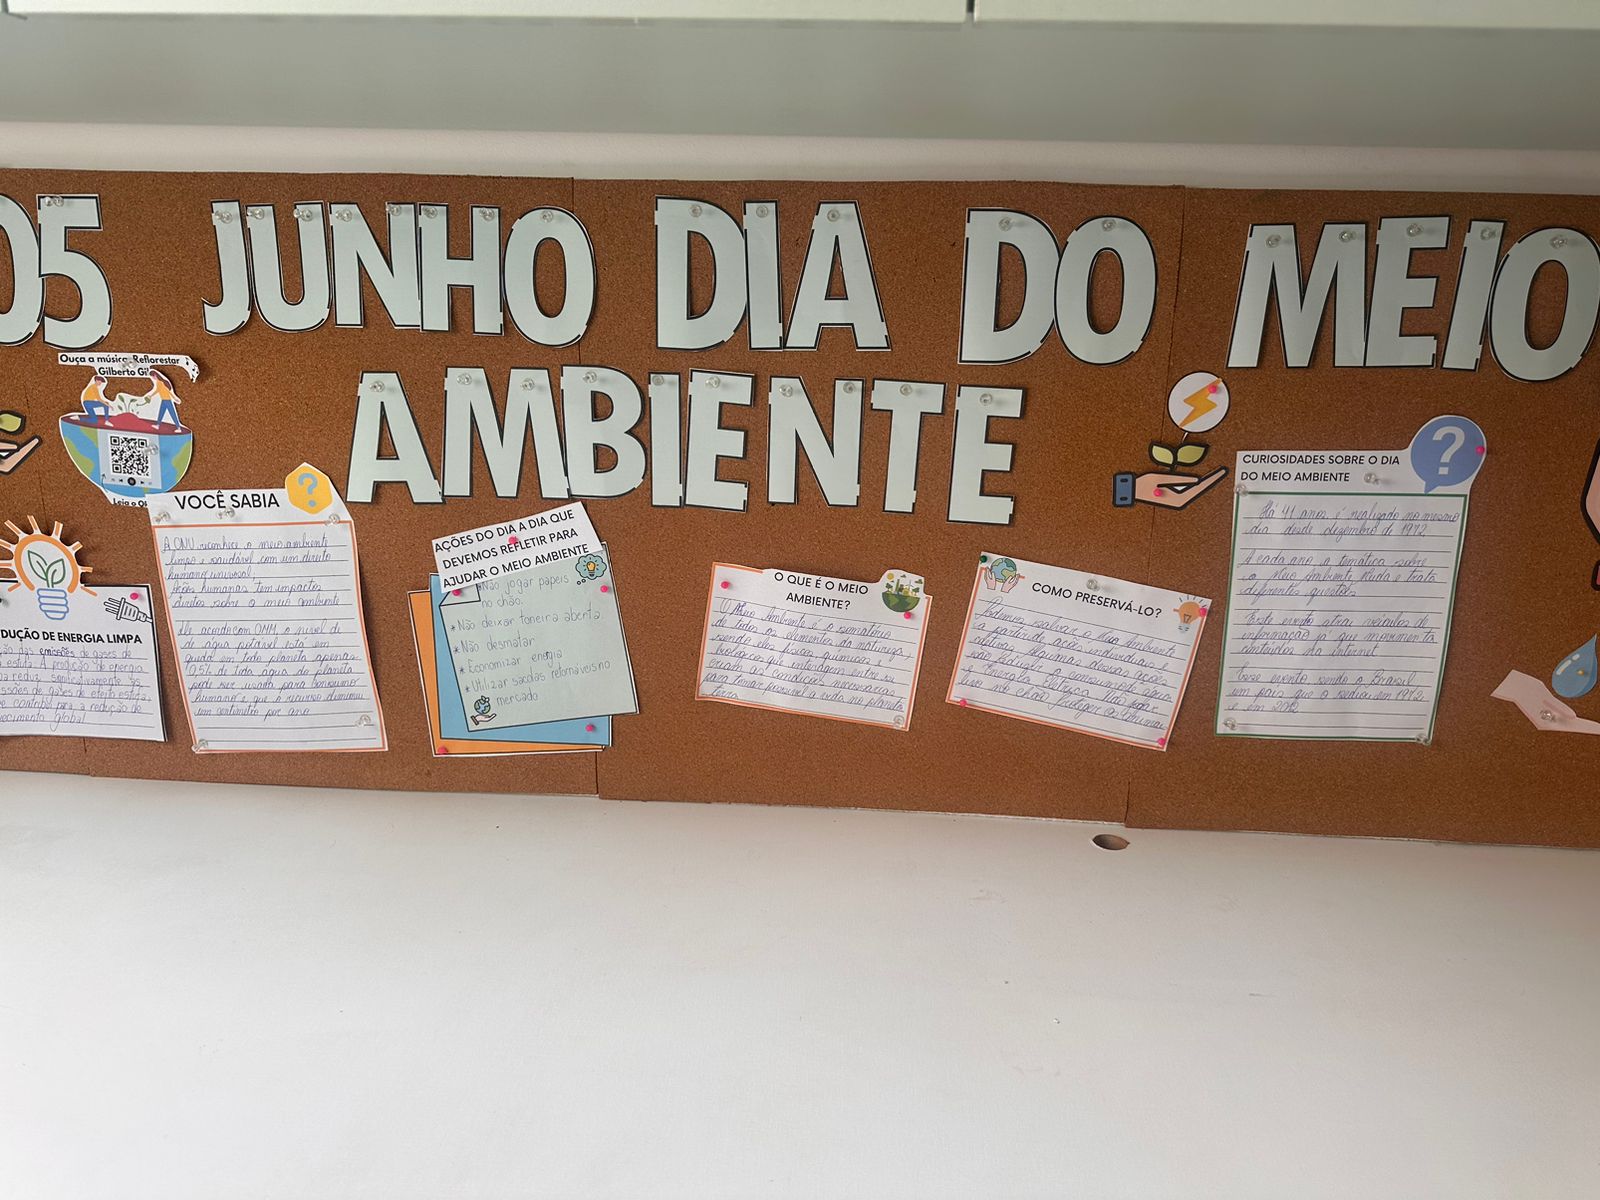 05 JUNHO DIA DO MEIO
AMBIENTE
Ouça a música Reflorestar
Gilberto Gil
Leia o
DUÇÃO DE ENERGIA LIMPA
ção das emissões de gases de
estufa. A produção de energia
a reduz significativamente as
ssões de gases de efeito estufa,
e contribui para a redução do
ecimento global
VOCÊ SABIA
?
A ONU reconhece o meio ambiente
limpo e saudável com um direito
humano universal.
Ações humanas tem impactos
diretos sobre o meio ambiente
De acordo com OMM, o nível de
de água potável está em
queda em todo planeta apenas
0,5% de toda água do planeta
pode ser usada para consumo
humano e que o recurso diminui
um centímetro por ano
AÇÕES DO DIA A DIA QUE
DEVEMOS REFLETIR PARA
AJUDAR O MEIO AMBIENTE
*Não jogar papeis
no chão.
*Não deixar torneira aberta.
*Não desmatar
*Economizar energia
*Utilizar sacolas retornáveis no
mercado
O QUE É O MEIO
AMBIENTE?
O Meio Ambiente é o somatório
de todos os elementos da natureza,
sendo eles físicos, químicos e
biológicos que interagem entre si
criam as condições necessárias
para tornar possível a vida no planeta
terra
COMO PRESERVÁ-LO?
Podemos salvar o Meio Ambiente
a partir de ações individuais e
coletivas, algumas dessas ações
são Reduzir o consumo de água
e Energia Elétrica, Não jogar
lixo no chão, Proteger os Animais
CURIOSIDADES SOBRE O DIA
DO MEIO AMBIENTE
?
Há 41 anos é realizado no mesmo
dia desde dezembro de 1972
A cada ano, a temática sobre
o Meio Ambiente Muda e trata
diferentes questões
Este evento atrai veículos de
informação já que movimenta
conteúdos na internet
Esse evento sendo o Brasil
um país que o sediou em 1972
e em 2012